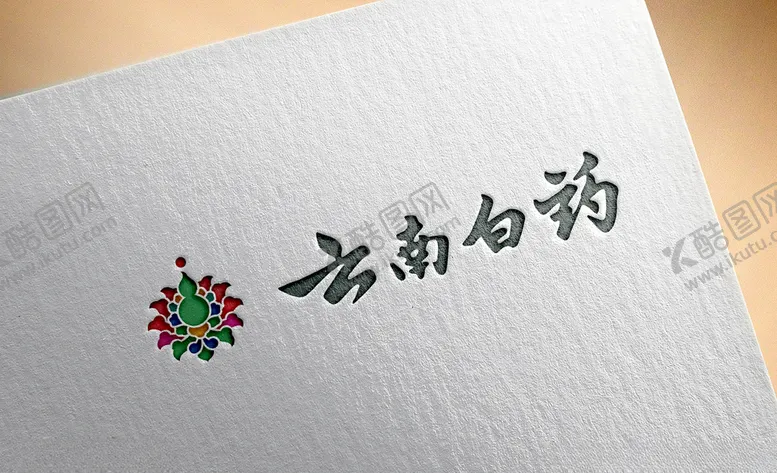 云南白药
酷图网
www.ikutu.com
酷图网
www.ikutu.com
酷图网
www.ikutu.com